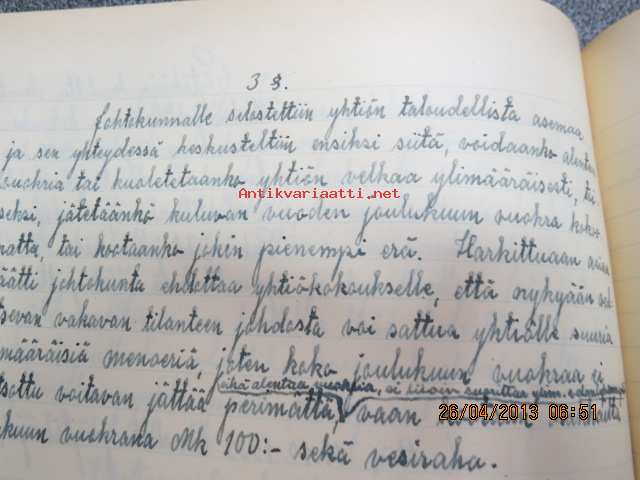 3 §.
Johtokunnalle selostettiin yhtiön taloudellista asemaa
ja sen yhteydessä keskusteltiin ensiksi siitä, voidaanko alentaa
vuokria tai kuoletetaanko yhtiön velkaa ylimääräisesti,
Antikvariaatti.net
seksi, jätetäänkö kuluvan vuoden joulukuun vuokra koko
matta, tai kootaanko jokin pienempi erä. Harkittuaan asiaa
päätti johtokunta ehdottaa yhtiökokoukselle, että nykyään
tsevan vakavan tilanteen johdosta voi sattua yhtiölle suuria
määräisiä menoeriä, joten koko joulukuun vuokraa ei
eikä alentaa vuokria, ei liioin suorittaa ylim.
tsottu voitavan jättää perimättä, vaan
kuun vuokrana Mk 100:- sekä vesiraha.
26/04/2013 06:51